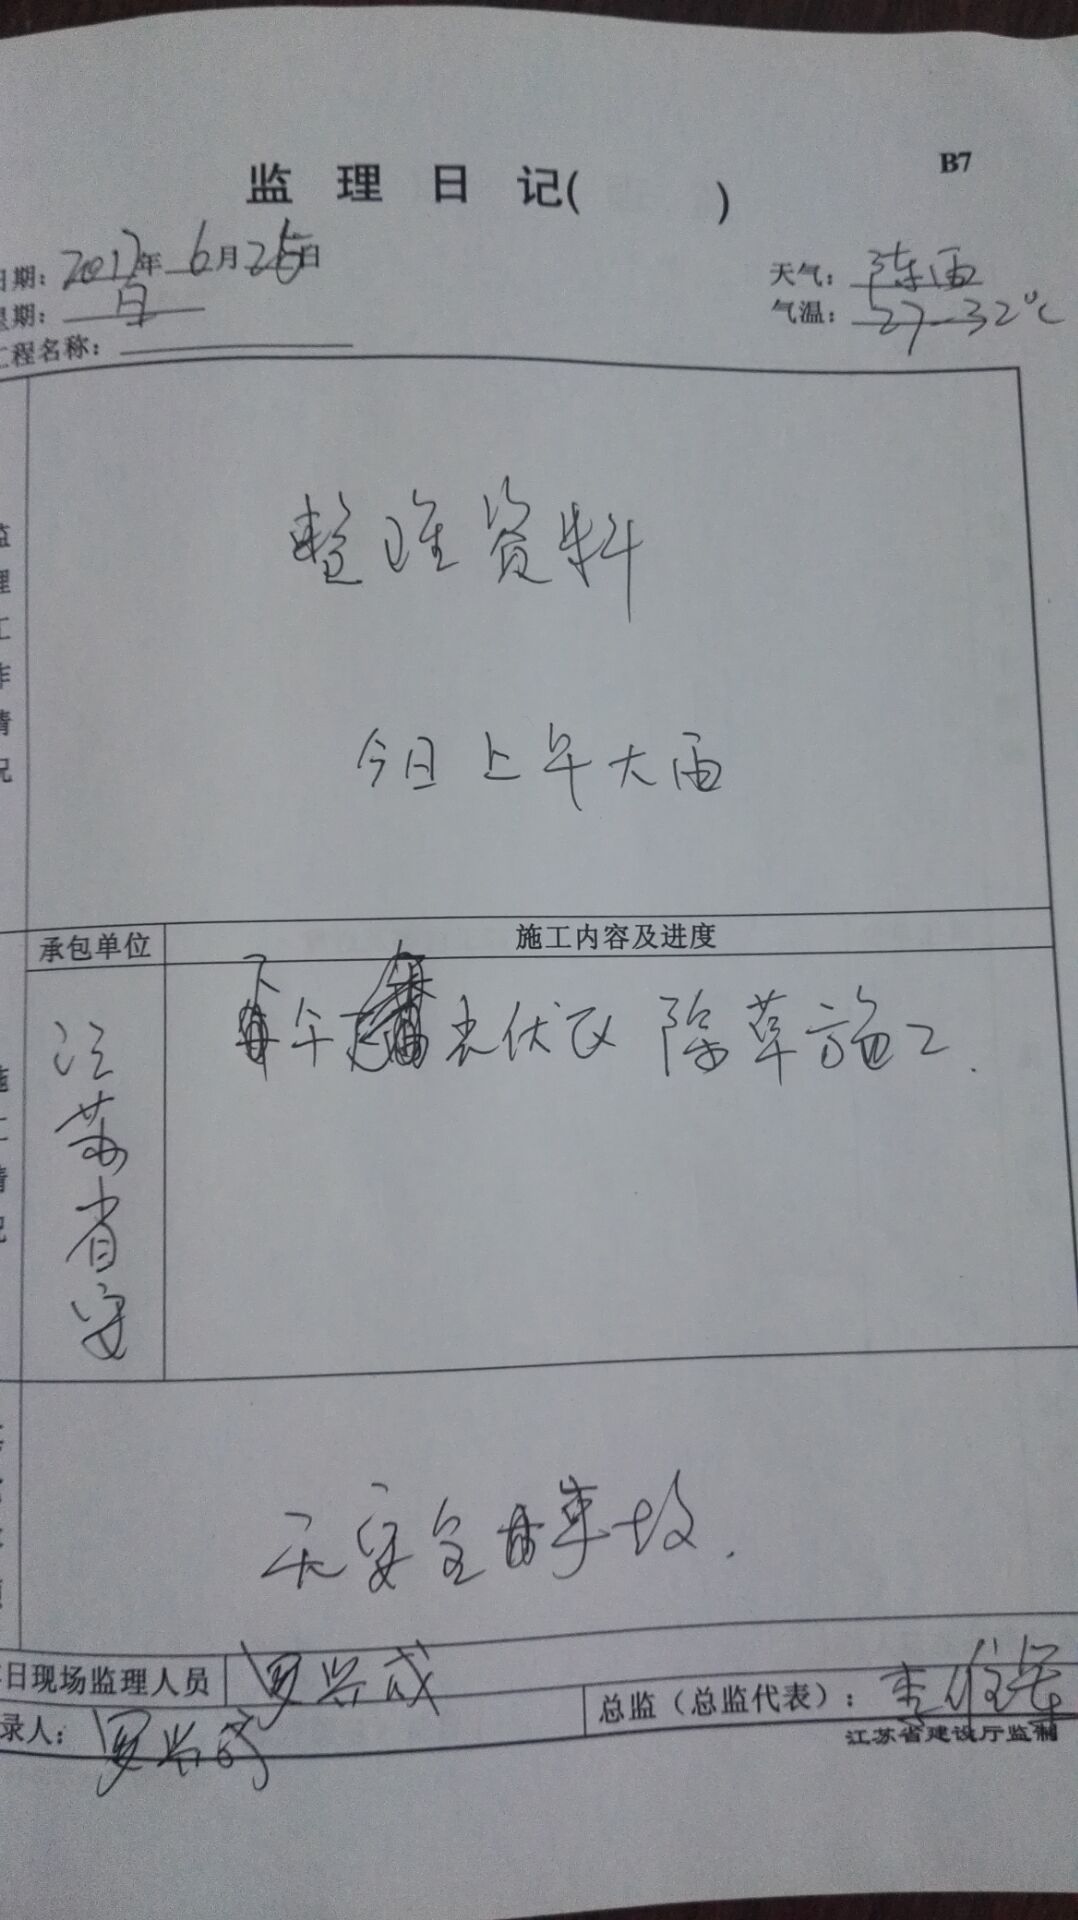 B7
监 理 日 记( )
日期: 2017年 6月 25日
天气: 阵雨
星期: 日
气温: 27-32℃
工程名称:
监理工作情况
整理资料
今日上午大雨
承包单位
施工内容及进度
施工情况
江苏省安
下午 光伏区 除草施工.
无安全事故.
本日现场监理人员
罗兴成
录人: 罗兴成
总监(总监代表): 李
江苏省建设厅监制